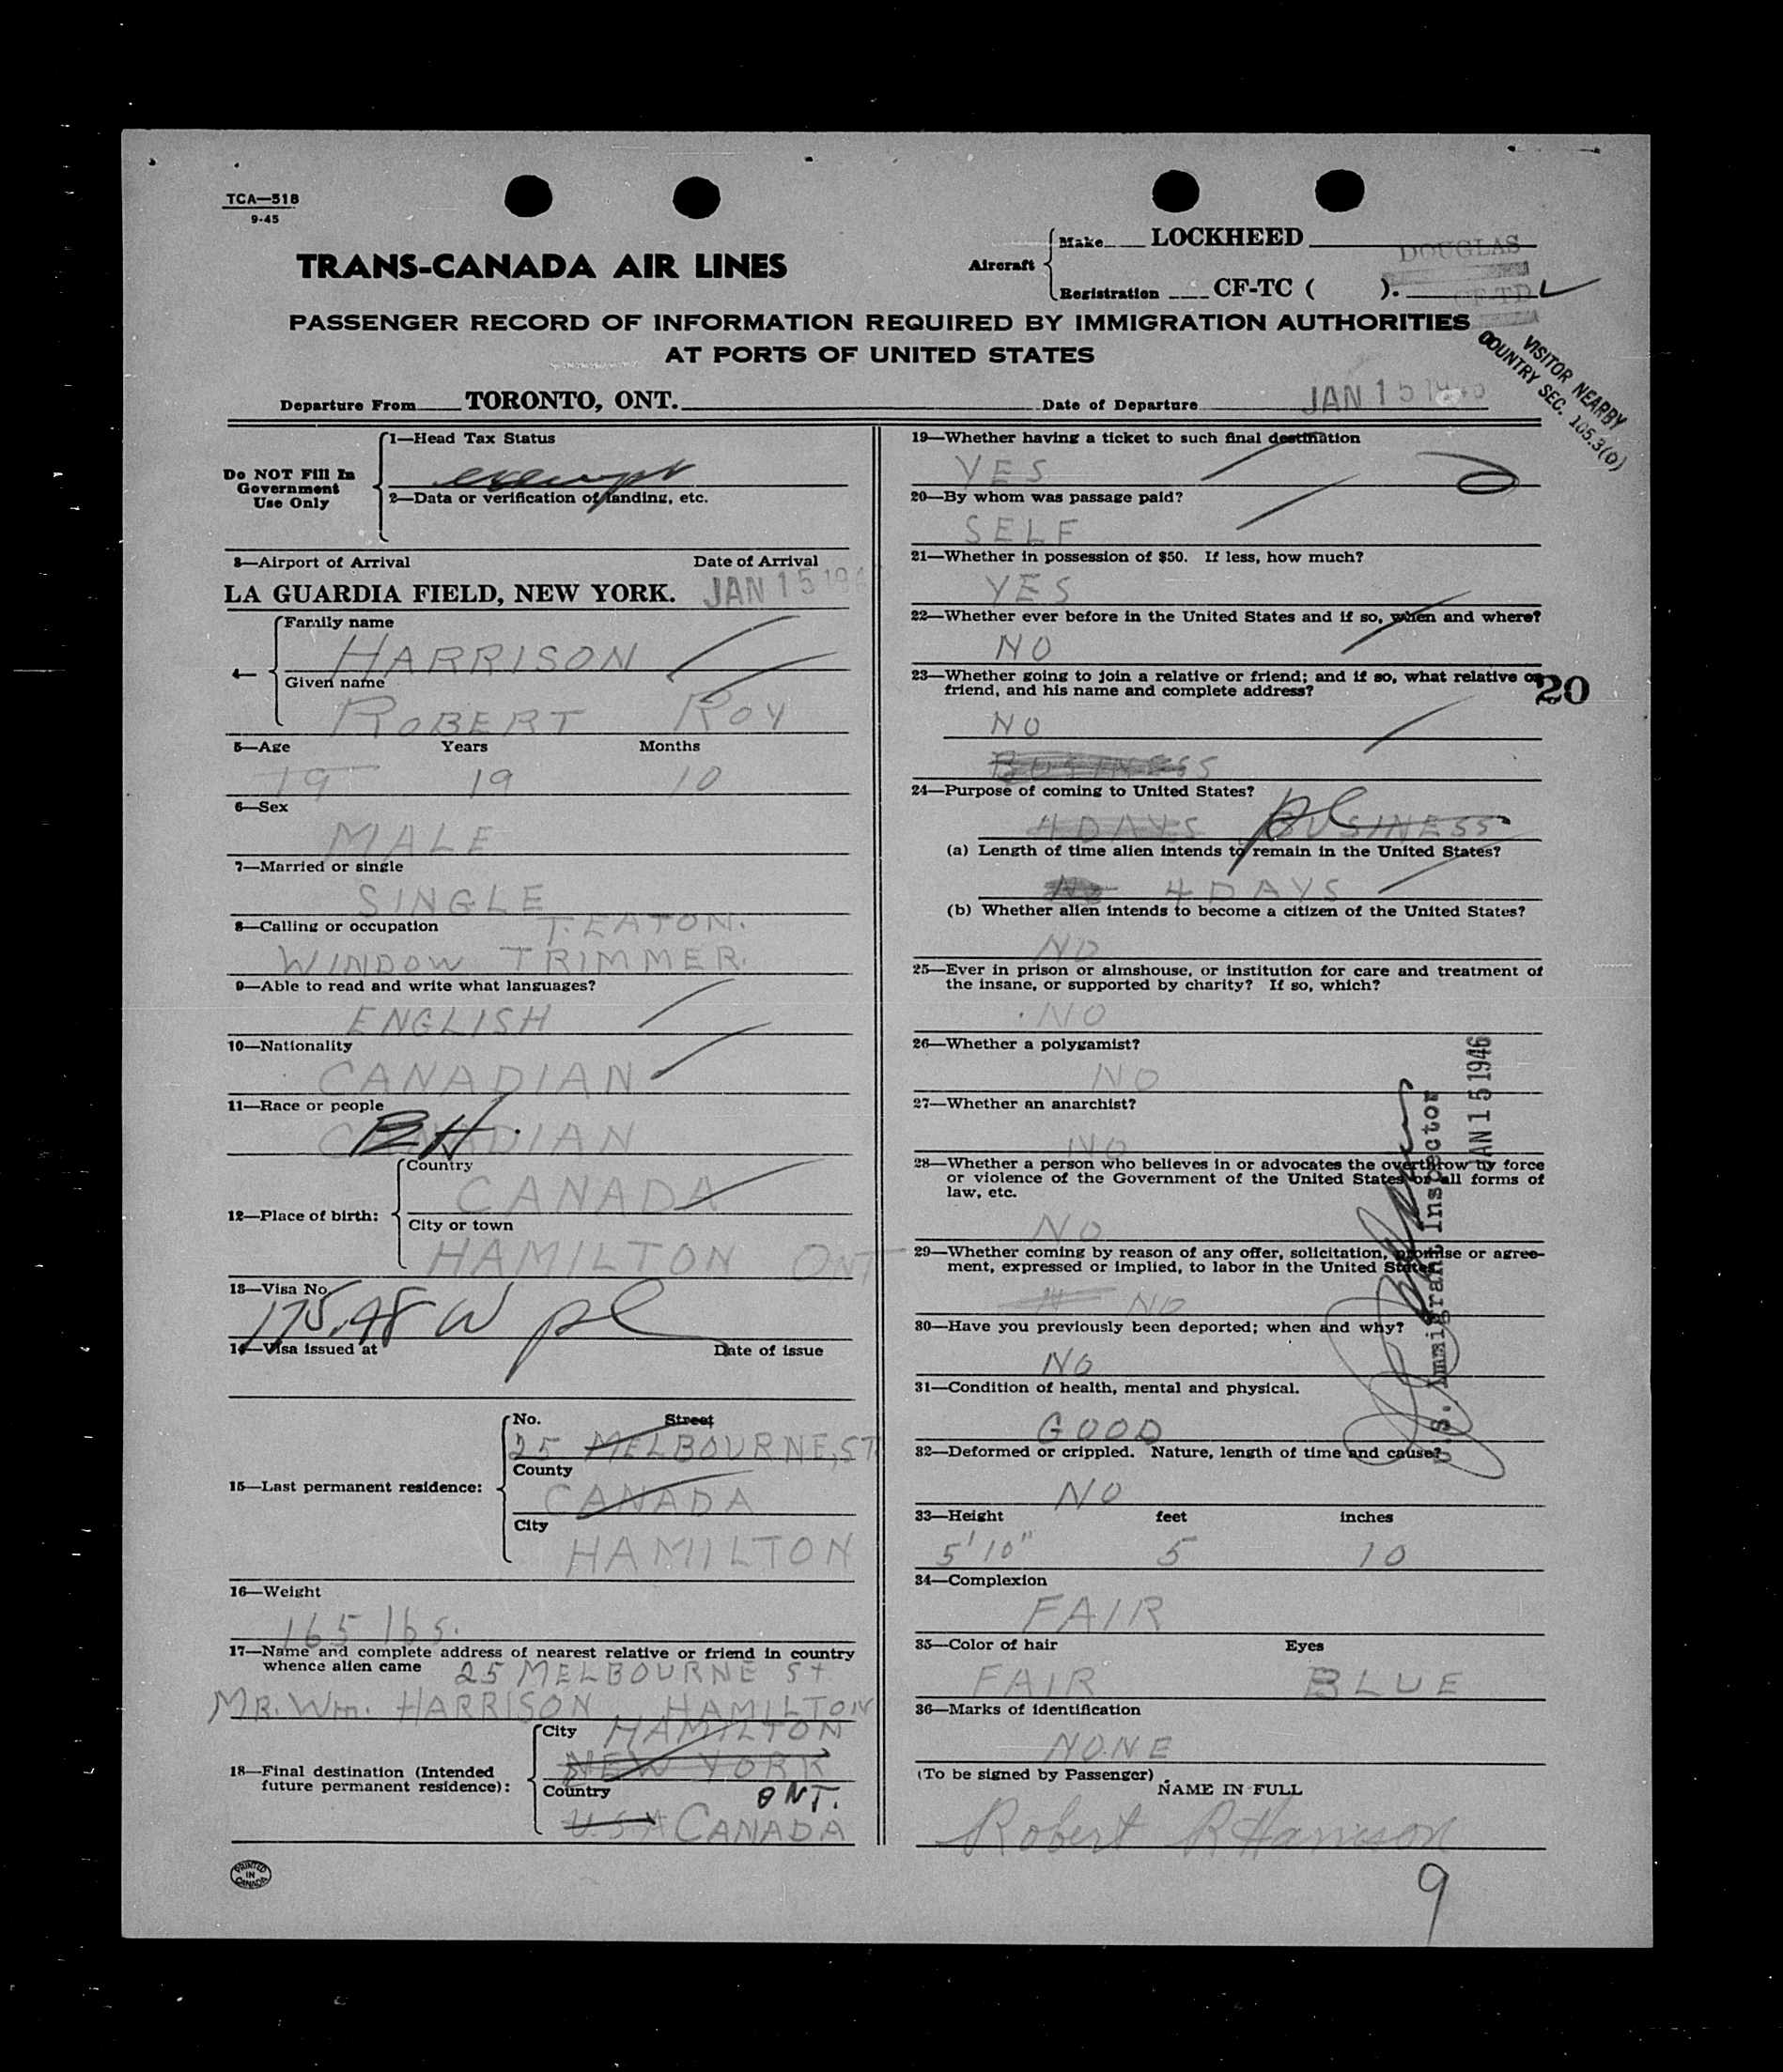 TCA—518
9-45
TRANS-CANADA AIR LINES
Aircraft
Make LOCKHEED
DOUGLAS
Registration CF-TC ( ).
CF-TD
PASSENGER RECORD OF INFORMATION REQUIRED BY IMMIGRATION AUTHORITIES
AT PORTS OF UNITED STATES
VISITOR NEARBY
COUNTRY SEC. 105.3(D)
Departure From TORONTO, ONT. Date of Departure JAN 15 1946
Do NOT Fill In
Government
Use Only
1—Head Tax Status
exempt
2—Data or verification of landing, etc.
3—Airport of Arrival Date of Arrival
LA GUARDIA FIELD, NEW YORK. JAN 15 194
4—
Family name
HARRISON
Given name
ROBERT ROY
5—Age Years Months
19 19 10
6—Sex
MALE
7—Married or single
SINGLE
8—Calling or occupation T. EATON.
WINDOW TRIMMER.
9—Able to read and write what languages?
ENGLISH
10—Nationality
CANADIAN
11—Race or people
CANADIAN
12—Place of birth:
Country
CANADA
City or town
HAMILTON ONT
13—Visa No.
175.48 W
14—Visa issued at Date of issue
15—Last permanent residence:
No. Street
25 MELBOURNE, ST
County
CANADA
City
HAMILTON
16—Weight
165 lbs.
17—Name and complete address of nearest relative or friend in country
whence alien came 25 MELBOURNE St
MR. Wm. HARRISON HAMILTON
18—Final destination (Intended
future permanent residence):
City HAMILTON
NEW YORK
Country ONT.
USA CANADA
PRINTED
IN
CANADA
19—Whether having a ticket to such final destination
YES
20—By whom was passage paid?
SELF
21—Whether in possession of $50. If less, how much?
YES
22—Whether ever before in the United States and if so, when and where?
NO
23—Whether going to join a relative or friend; and if so, what relative or
friend, and his name and complete address?
20
NO
BUSINESS
24—Purpose of coming to United States?
4 DAYS BUSINESS
(a) Length of time alien intends to remain in the United States?
No 4 DAYS
(b) Whether alien intends to become a citizen of the United States?
NO
25—Ever in prison or almshouse, or institution for care and treatment of
the insane, or supported by charity? If so, which?
NO
26—Whether a polygamist?
NO
27—Whether an anarchist?
NO
28—Whether a person who believes in or advocates the overthrow by force
or violence of the Government of the United States or all forms of
law, etc.
NO
29—Whether coming by reason of any offer, solicitation, promise or agree-
ment, expressed or implied, to labor in the United States
N NO
30—Have you previously been deported; when and why?
NO
31—Condition of health, mental and physical.
GOOD
32—Deformed or crippled. Nature, length of time and cause?
NO
33—Height feet inches
5' 10" 5 10
34—Complexion
FAIR
35—Color of hair Eyes
FAIR BLUE
36—Marks of identification
NONE
(To be signed by Passenger)
NAME IN FULL
Robert R Harrison
9
U.S. Immigrant Inspector
JAN 15 1946